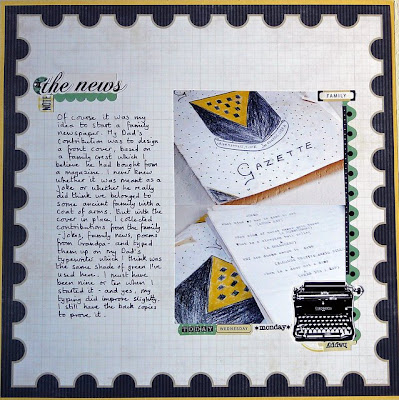 the news
Of course it was my
idea to start a family
newspaper. My Dad's
contribution was to design
a front cover, based on
a family crest which I
believe he had bought from
a magazine. I never knew
whether it was meant as a
joke or whether he really
did think we belonged to
some ancient family with a
coat of arms. But with the
cover in place I collected
contributions from the family
- jokes, family news, poems
from Grandpa - and typed
them up on my Dad's
typewriter which I think was
the same shade of green I've
used here. I must have
been nine or ten when I
started it - and yes, my
typing did improve slightly.
I still have the back copies
to prove it.
FAMILY
GAZETTE
TODAY WEDNESDAY *monday*